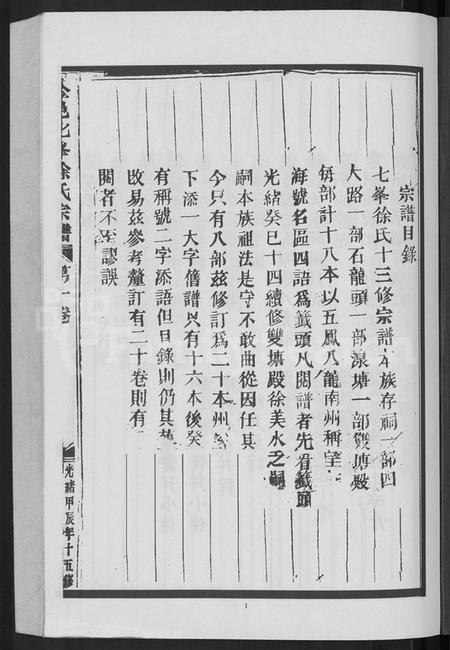 宗譜目錄
七峯徐氏十三修宗譜本族存祠一部四
大路一部石龍頭一部湶塘一部雙塘殿
每部計十八本以五鳳八龍南州稱望
海號名區四語爲籤頭凡閱譜者先看籤頭
光緒癸巳十四續修雙塘殿徐美水之嗣
嗣本族祖法是守不敢曲從因任其
今只有八部茲修訂爲二十本州
下添一大字舊譜只有十六本後癸
有稱號二字添語但目錄則仍其舊
改易茲參考釐訂有二十卷則有
閱者不至謬誤
邑北峯徐氏宗譜 第一卷
光緒甲辰年十五修
1